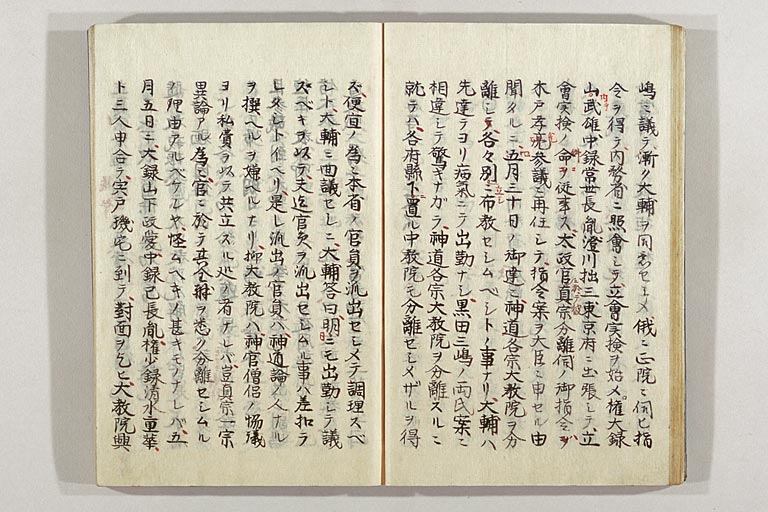 嶋ニ議テ漸ク大輔ヲ同意セシメ俄ニ正院ニ伺ヒ指
令ヲ得テ内務省ニ照會シテ立會実檢ヲ始メ權大録
山武雄中録常世長胤澄川拙三東京府ニ出張シテ立
會実檢ノ命ヲ従事ス太政官真宗分離伺ノ御指令ヲ
木戸孝允參議ニ再任シテ指令案ヲ大臣ニ申セル由
聞タルニ五月三十日ノ御達ニ神道各宗大教院ヲ分
離シテ各々別ニ布教セシムベシトノ事ナリ大輔ハ
先達テヨリ病氣ニテ出勤ナシ黒田三嶋ノ両氏案ニ
相違シテ驚キナガラ神道各宗大教院ヲ分離スルニ
就テハ各府縣下置ル中教院モ分離セシメザルヲ得
ズ便宜ノ為ニ本省ノ官員ヲ派出セシメテ調理スベ
シト大輔ニ面議セシニ大輔答曰明日ニモ出勤シテ議
スベキヲ以テ夫迄官員ヲ派出セシムル事ハ差扣ヲ
レタシトイヘリ是レ派出ノ官員ハ神道論ノ人ナル
ヲ撰ベルヲ嫌ベルナリ抑大教院ハ神官僧侶ノ協議
ヨリ私費ヲ以テ共立スル処ノ者ナレバ豈真宗一宗
異論アル為ニ官ニ於テ其全躰ヲ悉ク分離セシムル
ノ理由アルベケンヤ怪ムベキノ甚キモノナレバ五
月五日ニ大録山下政愛中録己長胤權少録清水重華
ト三人申合テ宍戸璣宅ニ到テ對面ヲ乞ヒ大教院興